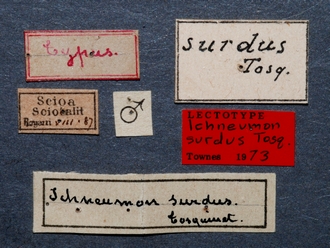 Typus.
surdus
Tosq.
Scioa
Scioalit
VIII. 87
♂
LECTOTYPE
Ichneumon
surdus Tosq.
Townes 1973
Ichneumon surdus.
Tosquinet.